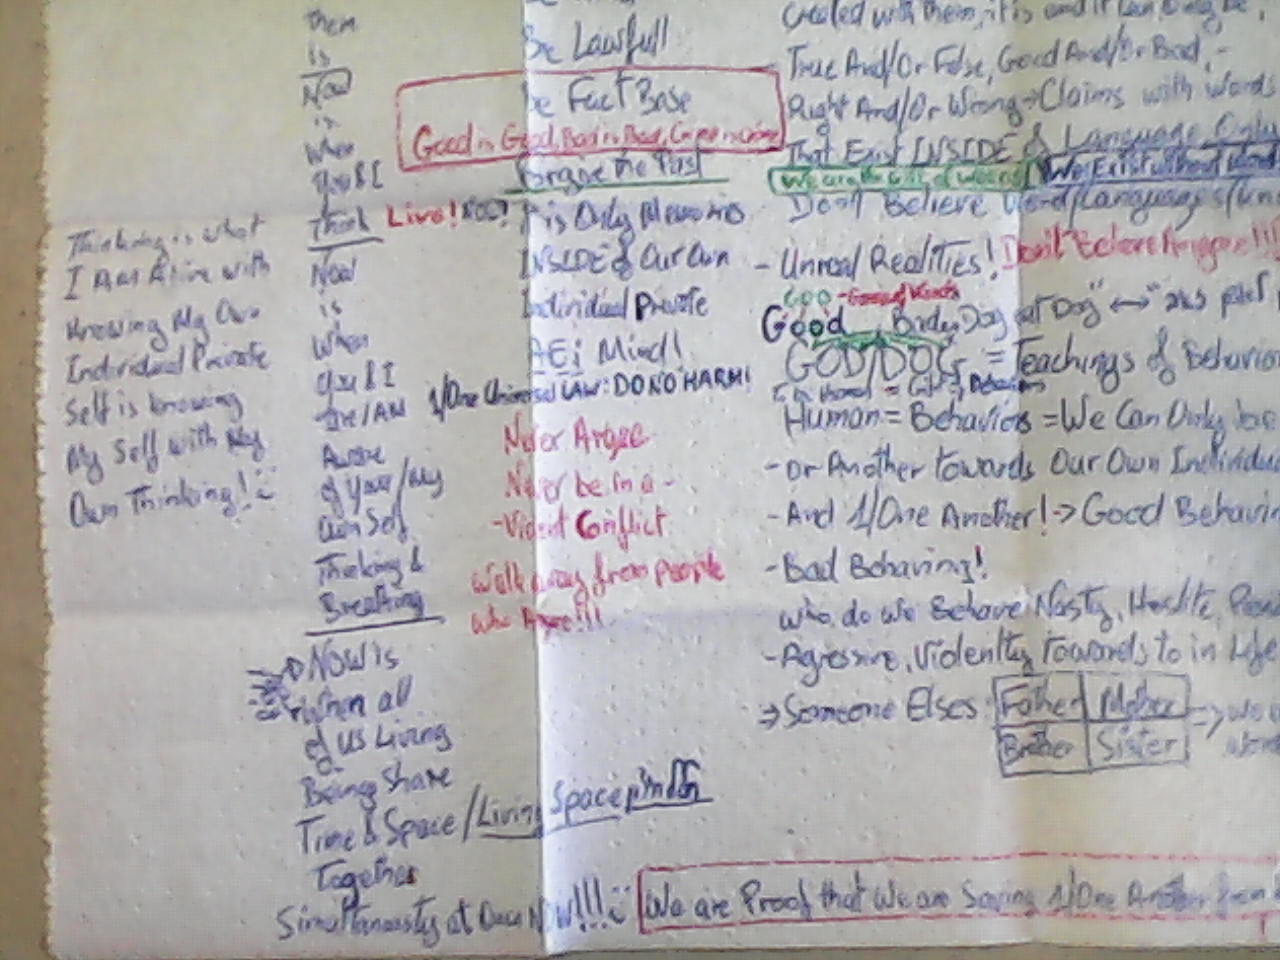 Thinking is what
I Am Alive with
Knowing My Own
Individual Private
Self is knowing
My Self with My
Own Thinking!
them
is
Now
is
when
you & I
Think
Now
is
When
you & I
Are/AM
Aware
of your/my
Own Self
Thinking &
Breathing
Now is
When all
of us Living
Being Share
Time & Space/Living Space
Together
Simultaneously at Once Now!!!
Be Lawfull
Be Fact Base
Good is Good, Bad is Bad, Crime is Crime
Forgive the Past
Live! It is Only Memories
INSIDE of Our Own
Individual Private
Mind!
1/One Universal LAW: DO NO HARM!
Never Argue
Never be in a -
-Violent Conflict
Walk away from people
who Argue!!!
Created with them, it is and it can Only be,
True And/Or False, Good And/Or Bad, -
Right And/Or Wrong → Claims with Words
That Exist INSIDE of Language Only
We are the We Exist without
Don't Believe Word/Languages
- Unreal Realities! Don't Believe Anyone!!!
Good Dog eat Dog" ↔
GOD/DOG = Teachings of Behavior
Human = Behaviors = We Can Only
-or Another towards Our Own Individual
-And 1/One Another! -> Good Behaving
-Bad Behaving!
who do we Behave Nasty,
-Agressive, Violently Towards to in Life
⇒ Someone Elses Father Mother
Brother Sister
We are Proof that We are Saving 1/One Another from